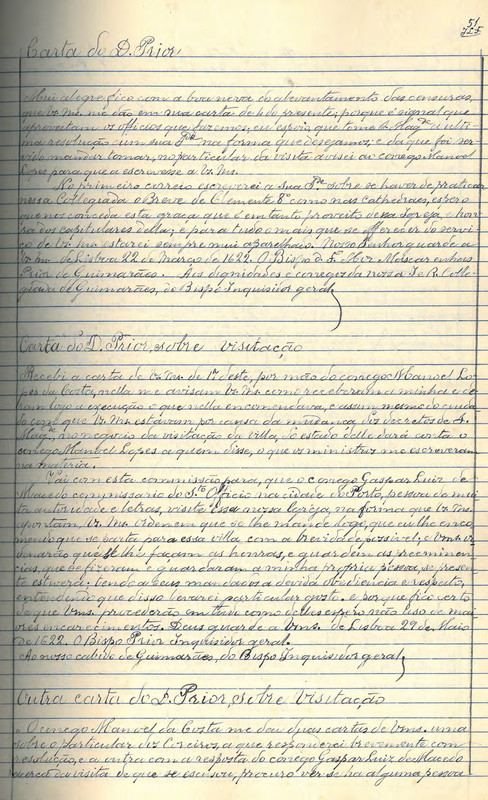 51
Carta do D. Prior
Mui alegre fico com a boa nova do alevantamento das censuras,
que V. Ms. me dão em sua carta de 4 do presente, porque é signal que
aproveitam os officios que fazemos; eu espero, que tome S. Mag.de ultima
resolução em sua na forma que desejamos; e da que foi ser-
vido mandar tomar, no particular da visita avisei ao conego Manoel
Lopes para que a escrevesse a V. Ms.
No primeiro correio escreverei a Sua S.de sobre se haver de praticar
nessa Collegiada o Breve de Clemente 8º como nas Cathedraes, espero
que nos conceda esta graça que é em tanto proveito dessa Igreja, e hon-
ra dos capitulares della; e para tudo o mais que se offerecer do servi-
ço de V. Ms. estarei sempre mui aparelhado. Nosso Senhor guarde a
V. Ms. de Lisboa 22 de Março de 1622. O Bispo D. Mascarenhas
Prior de Guimarães. Ás dignidades e conegos da nossa I. R. Colle-
giada de Guimarães, do Bispo Inquisidor geral
Carta do D. Prior, sobre visitação
Recebi a carta de V. Ms. de 1º deste, por mão do conego Manoel Lo-
pes da Costa, nella me avisam V. Ms. como receberam a minha e de-
ram logo a execução o que nella encomendava, e assim mesmo do cuida-
do com que V. Ms. estavam por causa da mudança dos decretos de S.
Mag.de, no negocio da visitação da villa, do estado delle dará conta o
conego Manoel Lopes a quem disse, o que os ministros me escreveram
na materia.
Vai com esta commissão para, que o conego Gaspar Luiz de
Macedo commissario do S.to Officio na cidade do Porto, pessoa de mui-
ta autoridade e letras, visite essa nossa Igreja, na forma que V. Ms.
apontam, V. Ms. ordenem que se lhe mande logo, que eu lhe enco-
mendo que se parta para essa villa com a brevidade possivel; e V. Ms. or-
denarão que se lhe façam as honras, e guardem as preeminen-
cias, que se fizeram e guardaram a minha propria pessoa, se presen-
te estivera; tendo a seus mandados a devida obediencia e respeito,
entendendo que disso levarei particular gosto. e porque fico certo
de que Vms. procederão em tudo como delles espero não uso de mai-
ores encarecimentos. Deus guarde a Vms. de Lisboa 29 de Maio
de 1622. O Bispo Prior Inquisidor geral.
Ao nosso cabido de Guimarães, do Bispo Inquisidor geral
Outra carta do D. Prior, sobre visitação
O conego Manoel da Costa me deu duas cartas de Vms. uma
sobre o particular dos Coreiros, a que responderei brevemente com
resolução, e a outra com a resposta do conego Gaspar Luiz de Macedo
acerca da visita de que se escusou, procuro ver se ha alguma pessoa